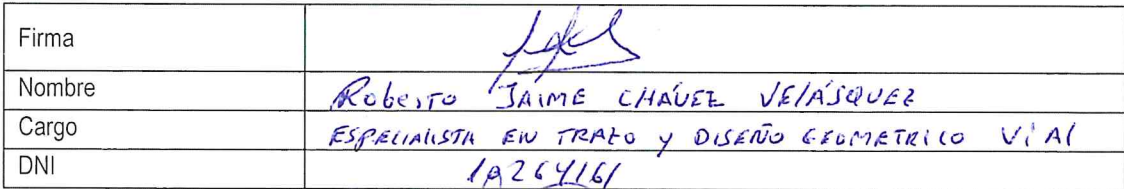 Firma
Nombre Roberto JAIME CHÁVEZ VELÁSQUEZ
Cargo ESPECIALISTA EN TRAZO Y DISEÑO GEOMETRICO VIAL
DNI